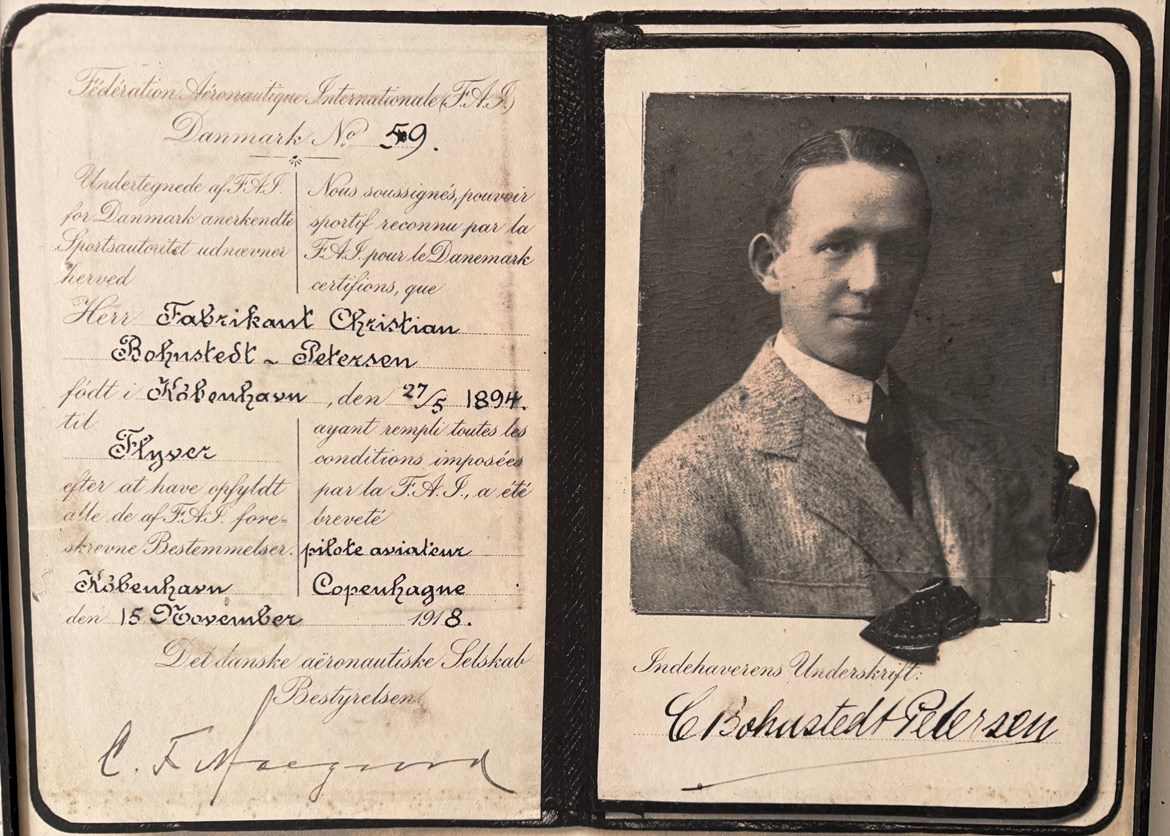 Fédération Aéronautique Internationale (F.A.I.)
Danmark No 59.
Undertegnede af F.A.I.
for Danmark anerkendte
Sportsautoritet udnævner
herved
Nous soussignés, pouvoir
sportif reconnu par la
F.A.I. pour le Danemark
certifions, que
Herr Fabrikant Christian
Bohnstedt - Petersen
født i København, den 27/5 1894.
til
Flyver
efter at have opfyldt
alle de af F.A.I. fore-
skrevne Bestemmelser.
København
den 15 November 1918.
ayant rempli toutes les
conditions imposées
par la F.A.I., a été
breveté
pilote aviateur
Copenhague
Det danske aëronautiske Selskab
Bestyrelsen
C. F.
Indehaverens Underskrift:
C Bohnstedt Petersen